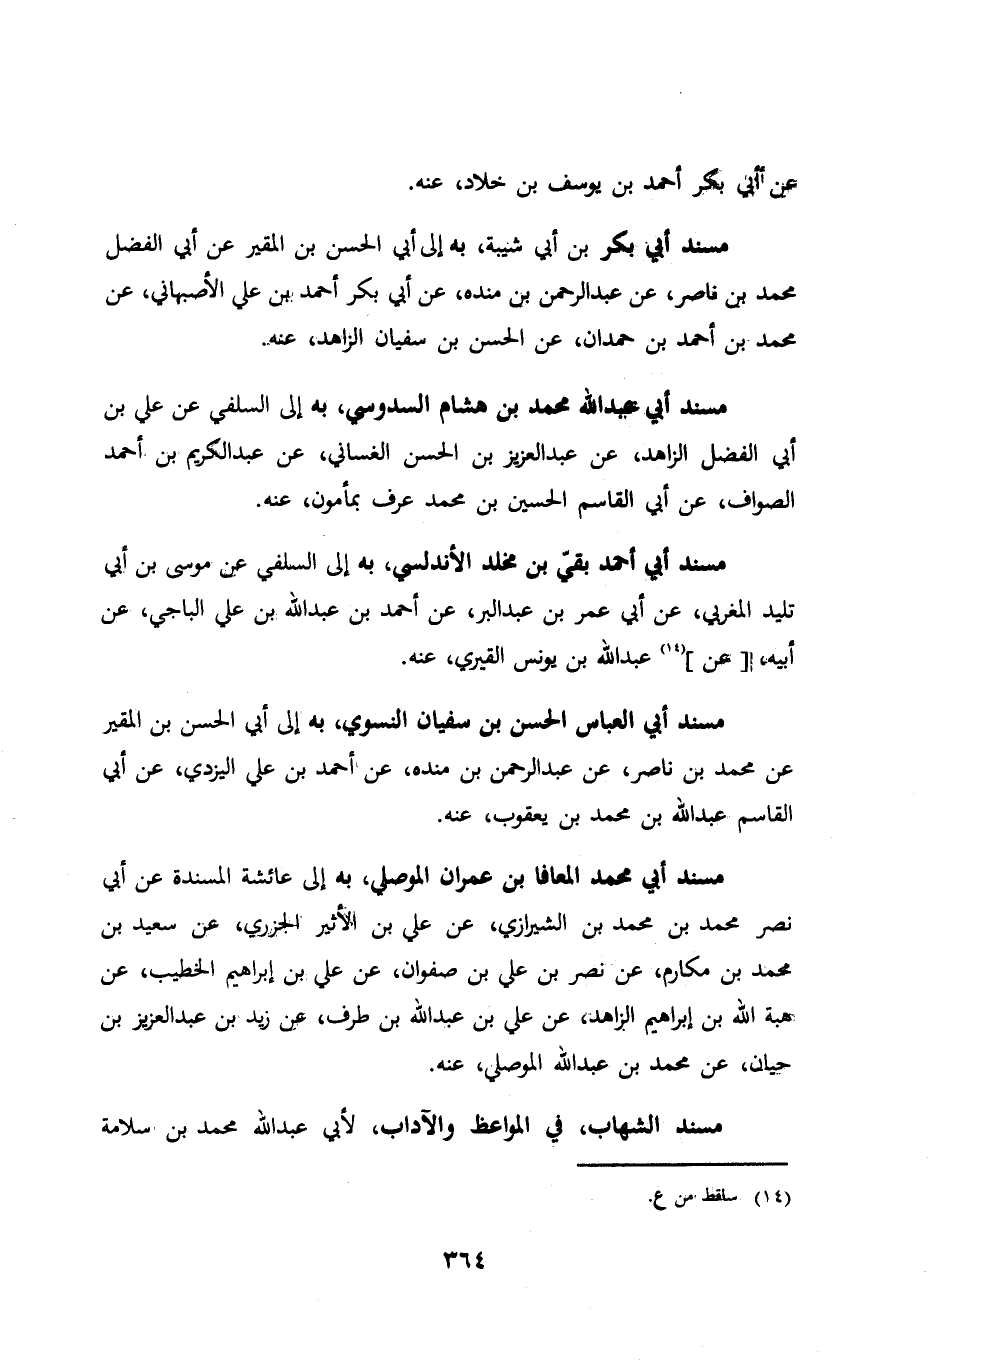 عن أبي بكر أحمد بن يوسف بن خلاد، عنه.
مسند أبي بكر بن أبي شيبة، به إلى أبي الحسن بن المقير عن أبي الفضل
محمد بن ناصر، عن عبدالرحمن بن منده، عن أبي بكر أحمد بن علي الأصبهاني، عن
محمد بن أحمد بن حمدان، عن الحسن بن سفيان الزاهد، عنه.
مسند أبي عبدالله محمد بن هشام السدوسي، به إلى السلفي عن علي بن
أبي الفضل الزاهد، عن عبدالعزيز بن الحسن الغساني، عن عبدالكريم بن أحمد
الصواف، عن أبي القاسم الحسين بن محمد عرف بمأمون، عنه.
مسند أبي أحمد بقيّ بن مخلد الأندلسي، به إلى السلفي عن موسى بن أبي
تليد المغربي، عن أبي عمر بن عبدالبر، عن أحمد بن عبدالله بن علي الباجي، عن
أبيه، [ عن ](١٤) عبدالله بن يونس القيري، عنه.
مسند أبي العباس الحسن بن سفيان النسوي، به إلى أبي الحسن بن المقير
عن محمد بن ناصر، عن عبدالرحمن بن منده، عن أحمد بن علي اليزدي، عن أبي
القاسم عبدالله بن محمد بن يعقوب، عنه.
مسند أبي محمد المعافا بن عمران الموصلي، به إلى عائشة المسندة عن أبي
نصر محمد بن محمد بن الشيرازي، عن علي بن الأثير الجزري، عن سعيد بن
محمد بن مكارم، عن نصر بن علي بن صفوان، عن علي بن إبراهيم الخطيب، عن
هبة الله بن إبراهيم الزاهد، عن علي بن عبدالله بن طرف، عن زيد بن عبدالعزيز بن
حيان، عن محمد بن عبدالله الموصلي، عنه.
مسند الشهاب، في المواعظ والآداب، لأبي عبدالله محمد بن سلامة
(١٤) ساقط من ع.
٣٦٤